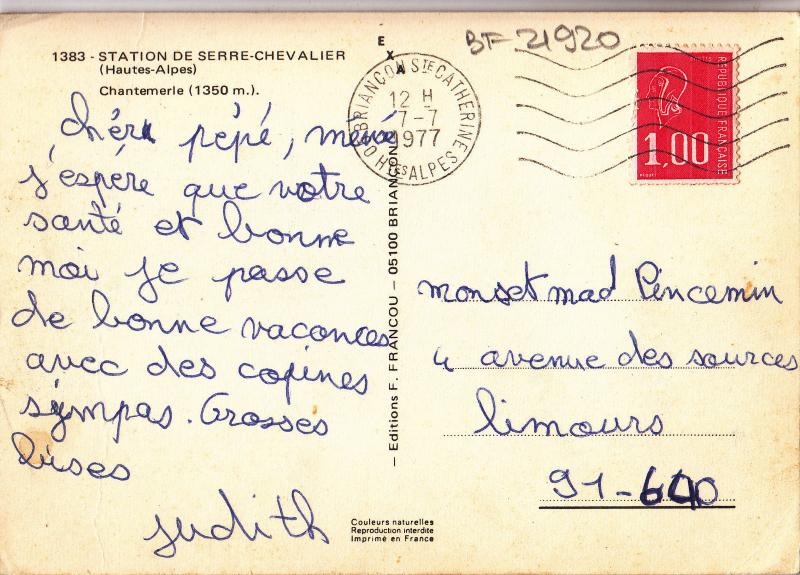 BF 21920
1383 - STATION DE SERRE-CHEVALIER
(Hautes-Alpes)
Chantemerle (1350 m.).
EXA
BRIANÇON STE CATHERINE
12 H
7-7
1977
HTES ALPES
REPUBLIQUE FRANÇAISE
1,00
chéra pépé, mémé
j'espére que votre
santé et bonne
moi je passe
de bonne vacances
avec des copines
sympas. Grosses
bises
judith
— Editions F. FRANCOU — 05100 BRIANÇON
monset mad Pincemin
4 avenue des sources
limours
91-640
Couleurs naturelles
Reproduction interdite
Imprimé en France